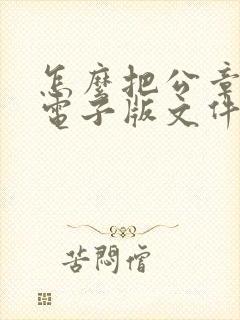 怎麽把公章
電子版文件
苦悶僧